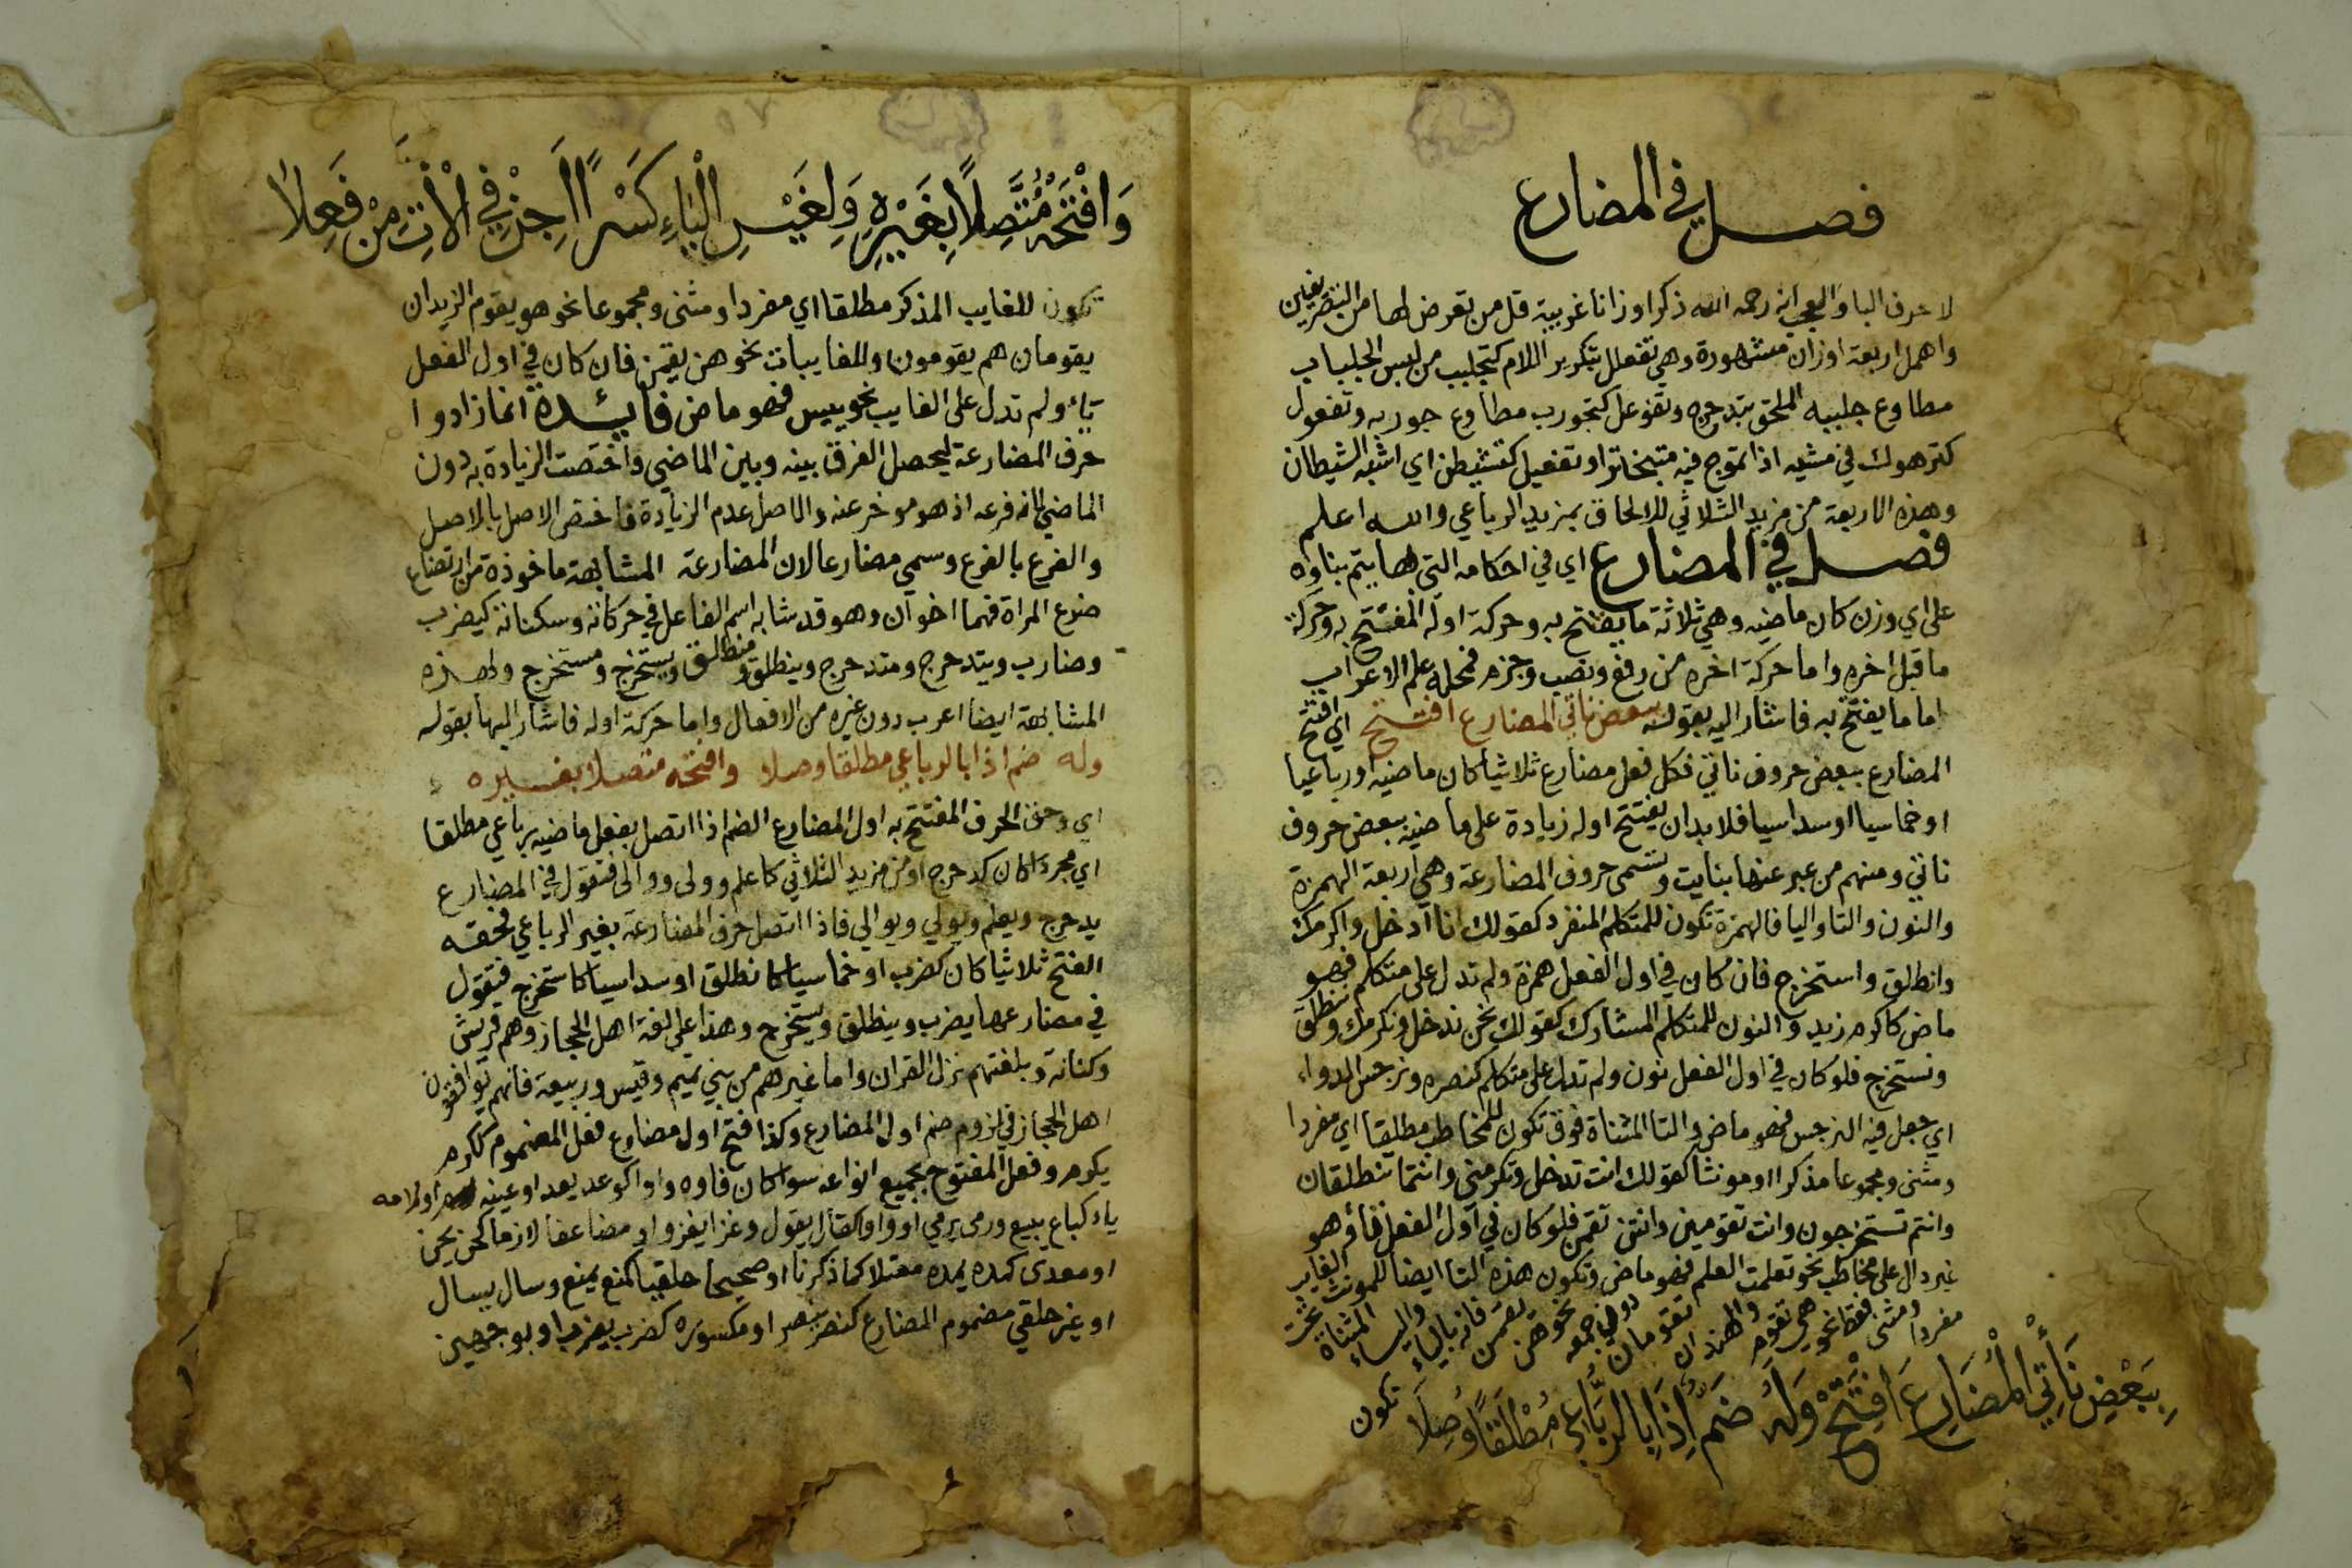 فصل في المضارع
لا حرف اليا والعجب انه رحمه الله ذكر اوزانا غريبة قل من تعرض لها من التصريفين
واهمل اربعة اوزان مشهورة وهي تفعلل بتكرير اللام كتجلبب من لبس الجلباب
مطاوع جلببه الملحق بتدحرج وتفوعل كتجورب مطاوع جوربه وتفعول
كترهوك في مشيه اذا تموج فيه متبخترا وتفعيل كتشيطن اي اشبه الشيطان
وهذه الاربعة من مزيد الثلاثي للالحاق بمزيد الرباعي والله اعلم
فصل في المضارع اي في احكامه التي بها يتم بناوه
على اي وزن كان ماضيه وهي ثلاثة ما يفتتح به وحركة اوله المفتتح به وحركة
ما قبل اخره واما حركة اخره من رفع ونصب وجزم فمحله علم الاعراب
اما ما يفتتح به فاشار اليه بقوله ببعض ناتي المضارع افتتح اي افتتح
المضارع ببعض حروف ناتي فكل فعل مضارع ثلاثيا كان ماضيه او رباعيا
او خماسيا او سداسيا فلا بد ان يفتتح اوله زيادة على ماضيه ببعض حروف
ناتي ومنهم من عبر عنها بنايت وتسمى حروف المضارعة وهي اربعة الهمزة
والنون والتا واليا فالهمزة تكون للمتكلم المنفرد كقولك انا ادخل واكرمك
وانطلق واستخرج فان كان في اول الفعل همزة ولم تدل على متكلم فهو
ماض كاكرم زيد والنون للمتكلم المشارك كقولك نحن ندخل ونكرمك وننطلق
ونستخرج فلو كان في اول الفعل نون ولم تدل على متكلم كنصره ونرجس الدواء
اي جعل فيه النرجس فهو ماض والتا المثناة فوق تكون للمخاطب مطلقا اي مفردا
ومثنى ومجموعا مذكرا او مونثا كقولك انت تدخل وتكرمني وانتما تنطلقان
وانتم تستخرجون وانت تقومين وانتن تقمن فلو كان في اول الفعل تا وهو
غير دال على مخاطب نحو تعلمت العلم فهو ماض وتكون هذه التا ايضا للمونث الغايب
مفردا ومثنى فقط نحو هي تقوم والهندان تقومان دون جمعه نحو هن يقمن فانه بالياء والياء المثناة تحت
تكون
بِبَعْضِ نَأْتِي الْمُضَارِعَ افْتَتِحْ وَلَهُ ضَمٌّ إِذَا بِالرُّبَاعِي مُطْلَقًا وُصِلَا
وَافْتَحْهُ مُتَّصِلًا بِغَيْرِهِ وَلِغَيْرِ الْيَاءِ كَسْرًا أَجِزْ فِي الْآتِ مِنْ فَعِلَا
تكون للغايب المذكر مطلقا اي مفردا ومثنى ومجموعا نحو هو يقوم الزيدان
يقومان هم يقومون وللغايبات نحو هن يقمن فان كان في اول الفعل
ياء ولم تدل على الغايب نحو ييس فهو ماض فايدة انما زادوا
حرف المضارعة ليحصل الفرق بينه وبين الماضي واختصت الزيادة به دون
الماضي لانه فرعه اذ هو موخر عنه والاصل عدم الزيادة فاختص الاصل بالاصل
والفرع بالفرع وسمي مضارعا لان المضارعة المشابهة ماخوذة من ارتضاع
ضرع المراة فهما اخوان وهو قد شابه اسم الفاعل في حركاته وسكناته كيضرب
وضارب ويتدحرج ومتدحرج وينطلق ومنطلق ويستخرج ومستخرج ولهذه
المشابهة ايضا اعرب دون غيره من الافعال واما حركة اوله فاشار اليها بقوله
وله ضم اذا بالرباعي مطلقا وصلا وافتحه متصلا بغيره
اي وحق الحرف المفتتح به اول المضارع الضم اذا اتصل بفعل ماضيه رباعي مطلقا
اي مجردا كان كدحرج او من مزيد الثلاثي كاعلم وولى ووالى فتقول في المضارع
يدحرج ويعلم ويولي ويوالي فاذا اتصل حرف المضارعة بغير الرباعي فحقه
الفتح ثلاثيا كان كضرب او خماسيا كانطلق او سداسيا كاستخرج فتقول
في مضارعها يضرب وينطلق ويستخرج وهذا على لغة اهل الحجاز وهم قريش
وكنانة وبلغتهم نزل القران واما غيرهم من بني تميم وقيس وربيعة فانهم يوافقون
اهل الحجاز في لزوم ضم اول المضارع وكذا فتح اول مضارع فعل المضموم ككرم
يكرم وفعل المفتوح بجميع انواعه سوا كان فاوه واوا كوعد يعد او عينه او لامه
ياء كباع يبيع ورمى يرمي او واوا كقال يقول وغزا يغزو او مضاعفا لازما كحن يحن
او معدى كمده يمده معتلا كما ذكرنا او صحيحا حلقيا كمنع يمنع وسال يسال
او غير حلقي مضموم المضارع كنصر ينصر او مكسوره كضرب يضرب او بوجهين